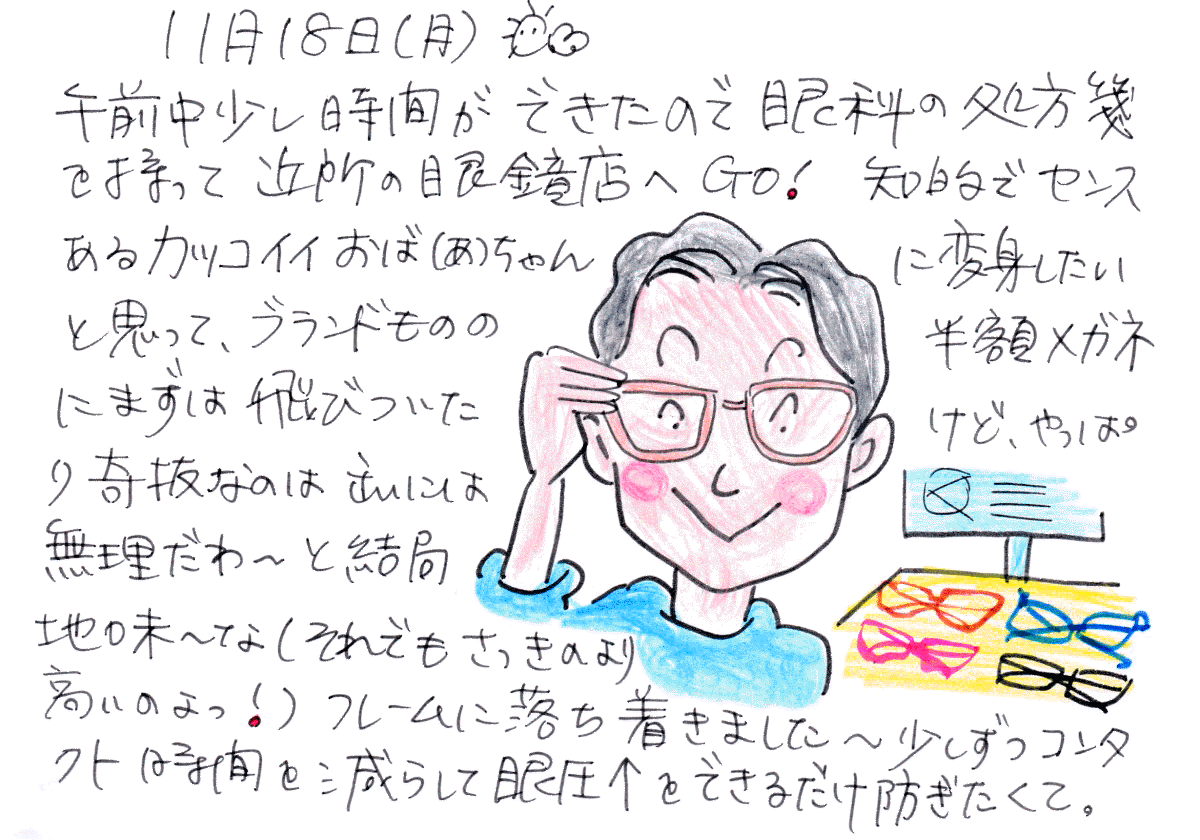 11月18日(月)
午前中少し時間ができたので眼科の処方箋
を持って近所の眼鏡店へGO! 知的でセンス
あるカッコイイおば(あ)ちゃんに変身したい
と思って、ブランドものの半額メガネ
にまずは飛びついたけど、やっぱ
り奇抜なのは私には
無理だわ〜と結局
地味〜な(それでもさっきのより
高いのよっ!)フレームに落ち着きました〜少しずつコンタ
クト時間を減らして眼圧↑をできるだけ防ぎたくて。